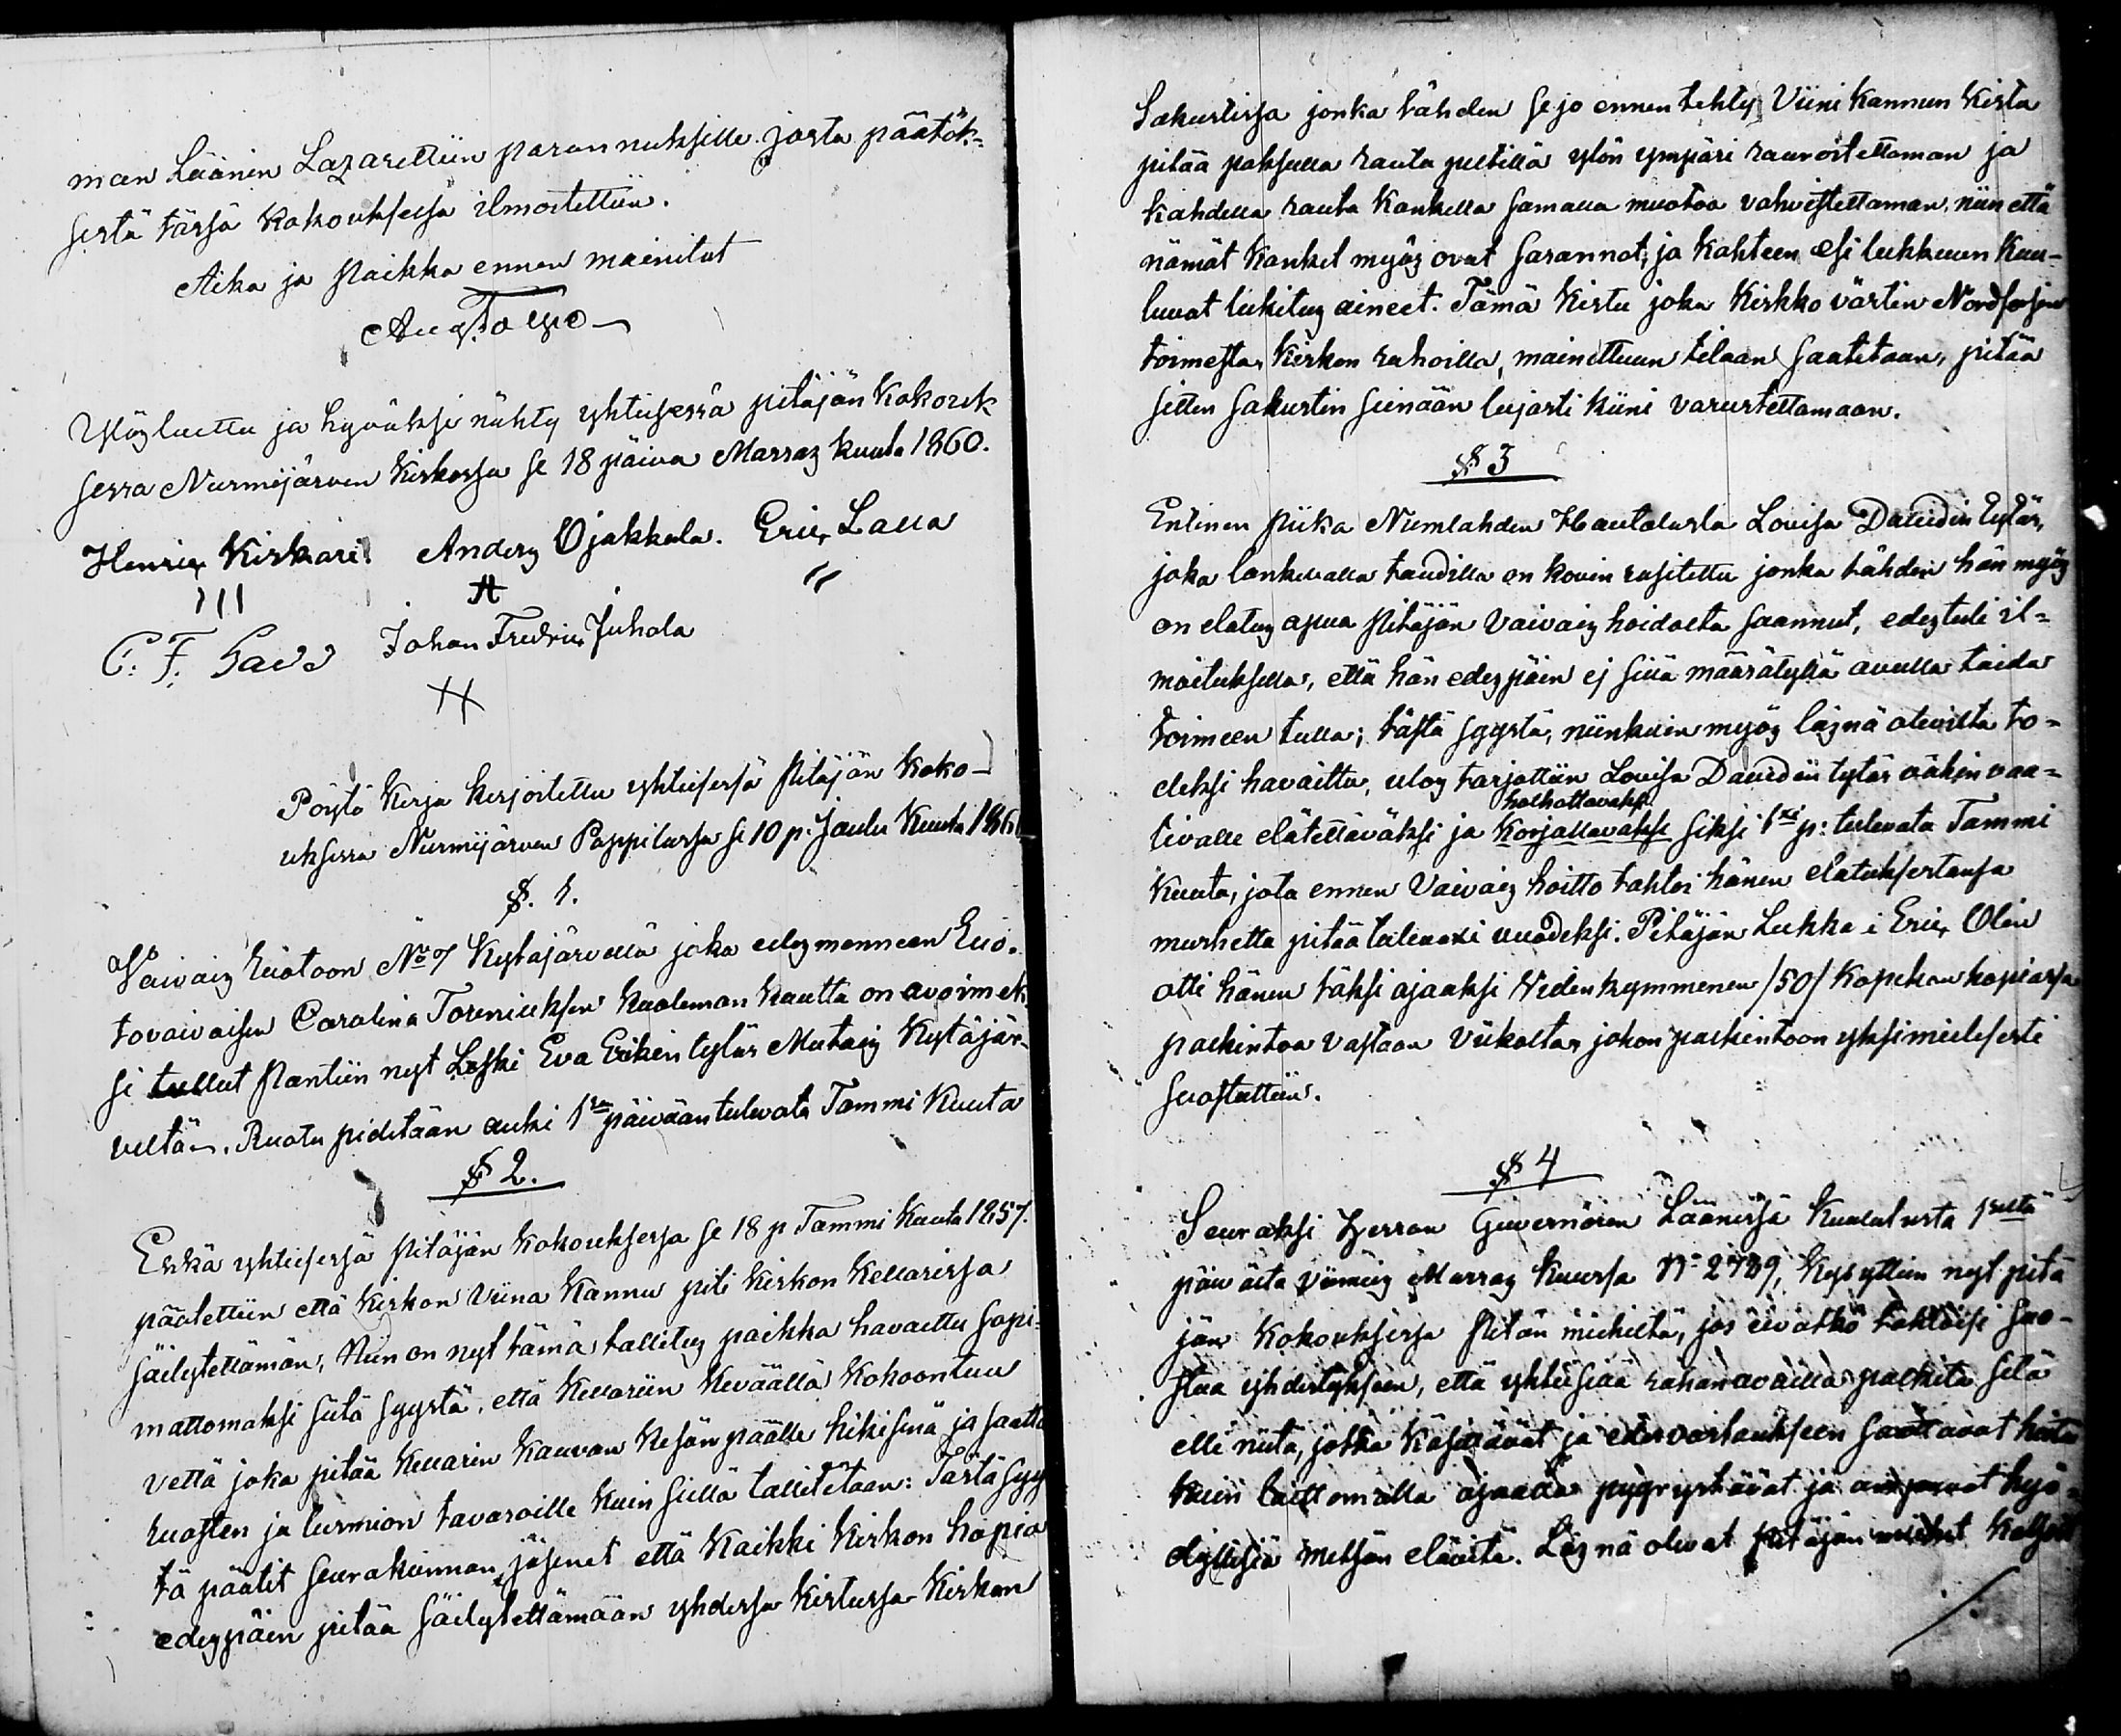 man Läänin Lazarettiin parannuksille josta päätök=
sestä tässä Kokouksessa ilmoitettiin.
Aika ja paikka ennen mainitut
Ylösluettu ja hyväksi nähty yhteisessä pitäjän Kokouk
sessa Nurmijärven Kirkossa se 18 päivä Marras kuuta 1860.
Henric Kirkari Anders Ojakkala. Eric Lalla
C. F. Johan Fredric Juhola
Pöytä Kirja kirjoitettu yhteisessä Pitäjän Koko-
uksessa Nurmijärven Pappilassa se 10 p. Joulu Kuuta 186
§. 1.
Vaivais Ruotoon No 7 Kytäjärvellä joka edesmenneen Ruo-
tovaivaisen Carolina Toreniuksen kuoleman kautta on avoimek
si tullut pantiin nyt Leski Eva Erikin tytär Mutais Kytäjär-
veltä. Ruotu pidetään auki 1sen päivään tulevata Tammi Kuuta
§ 2.
Ehkä yhteisessä pitäjän Kokouksessa se 18 p Tammi Kuuta 1857.
päätettiin että Kirkon Viina Kannu piti Kirkon Kellarissa
säilytettämän, Niin on nyt tämä tallitus paikka havaittu sopi=
mattomaksi siitä syystä, että Kellariin Keväällä Kokoontuu
vettä joka pitää Kellarin kauvan Kesän päälle hikisenä ja saatta
ruosten ja turmion tavaroille kuin siellä tallitetaan: Tästä syys
tä päätit seurakunnan jäsenet että Kaikki Kirkon hopia
edespäin pitää säilytettämään yhdessä Kistussa Kirkon
Sakastissa jonka tähden se jo ennen tehty Viini Kannun Kistu
pitää paksulla rauta peltillä ylön ympäri rauvoitettaman ja
kahdella rauta kankella samalla muotoa vahvistettaman, niin että
nämät kanket myös ovat sarannot, ja kahteen esi lukkuun kuu-
luvat lukitus aineet. Tämä Kistu joka Kirkko värtin Nordforsin
toimesta, Kirkon rahoilla, mainittuun tilaan saatetaan, pitää
sitten sakastin seinään lujasti kiini varustettamaan.
§ 3
Entinen piika Niemlahden Hautalasta Lovisa Davidin tytär,
joka lankevalla taudilla on kovin rasitettu jonka tähden hän myös
on elatus apua Pitäjän Vaivais hoidolta saannut, edestuli il=
moituksella, että hän edespäin ej sillä määrätyllä avulla taida
toimeen tulla; tästä syystä, niinkuin myös läsnä olevilta to=
deksi havaittu, ulos tarjottiin Lovisa Davidin tytär vähin vaa=
holhottavaksi
tivalle elätettäväksi ja Korjattavaksi siksi 1xi p: tulevata Tammi
Kuuta, jota ennen Vaivais hoitto tahtoi hänen elatuksestansa
murhetta pitää tulevaxi vuodeksi. Pitäjän Lukkai Eric Olin
otti hänen täksi ajaaksi Viidenkymmenen /50/ Kopekan hopiassa
palkintoa vastaan viikolta, johon palkintoon yksimielisesti
suostuttiin.
§ 4
Seuraksi Herran Guvernörin Läänissä Kuulutusta 1seltä
päivältä viimeis Marras kuussa No 2789, Kysyttiin nyt pitä
jän Kokouksessa Pitän miehiltä, jos eivätkö tahtoisi suo-
stua yhdistykseen, että yhteisiä rahanavailla palkita sitä
elli niitä, jotka käsittävät ja edesvastaukseen saattavat
kuin laittomalla ajaalla pyyrystävät ja ampuvat hyö=
dyllisiä metsän eläviä. Läsnä olevat Pitäjän miehet